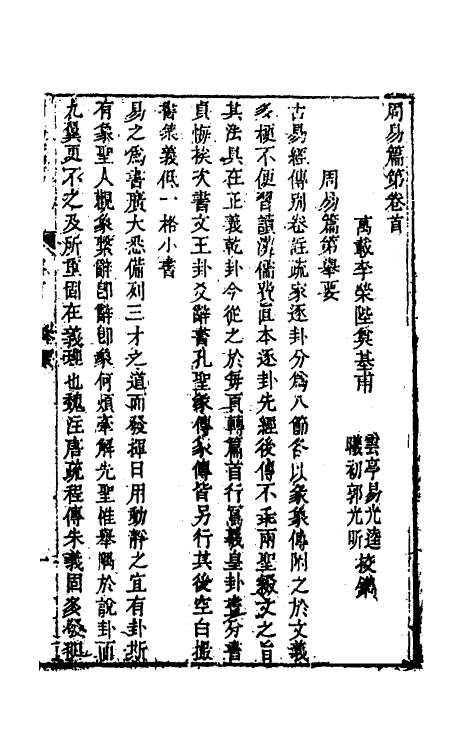 周易篇第卷首
萬載李榮陛奠基甫
雲亭易光逵
曦初郭光昕
校鐫
周易篇第舉要
古易經傳別卷註疏家逐卦分為八節各以彖象傳附之於文義
多梗不便習讀漢儒費直本逐卦先經後傳不乖兩聖綴文之旨
其法具在正義乾卦今從之於每頁轉篇首行寫羲皇卦畫分書
貞悔挨次書文王卦爻辭書孔聖彖傳象傳皆另行其後空白撮
舊義低一格小書
易之為書廣大悉備列三才之道而發揮日用動靜之宜有卦斯
有象聖人觀象繫辭卽辭卽象何煩牽解先聖惟舉隅於說卦而
九翼更不之及所重固在義理也魏注唐疏程傳朱義固多發揮